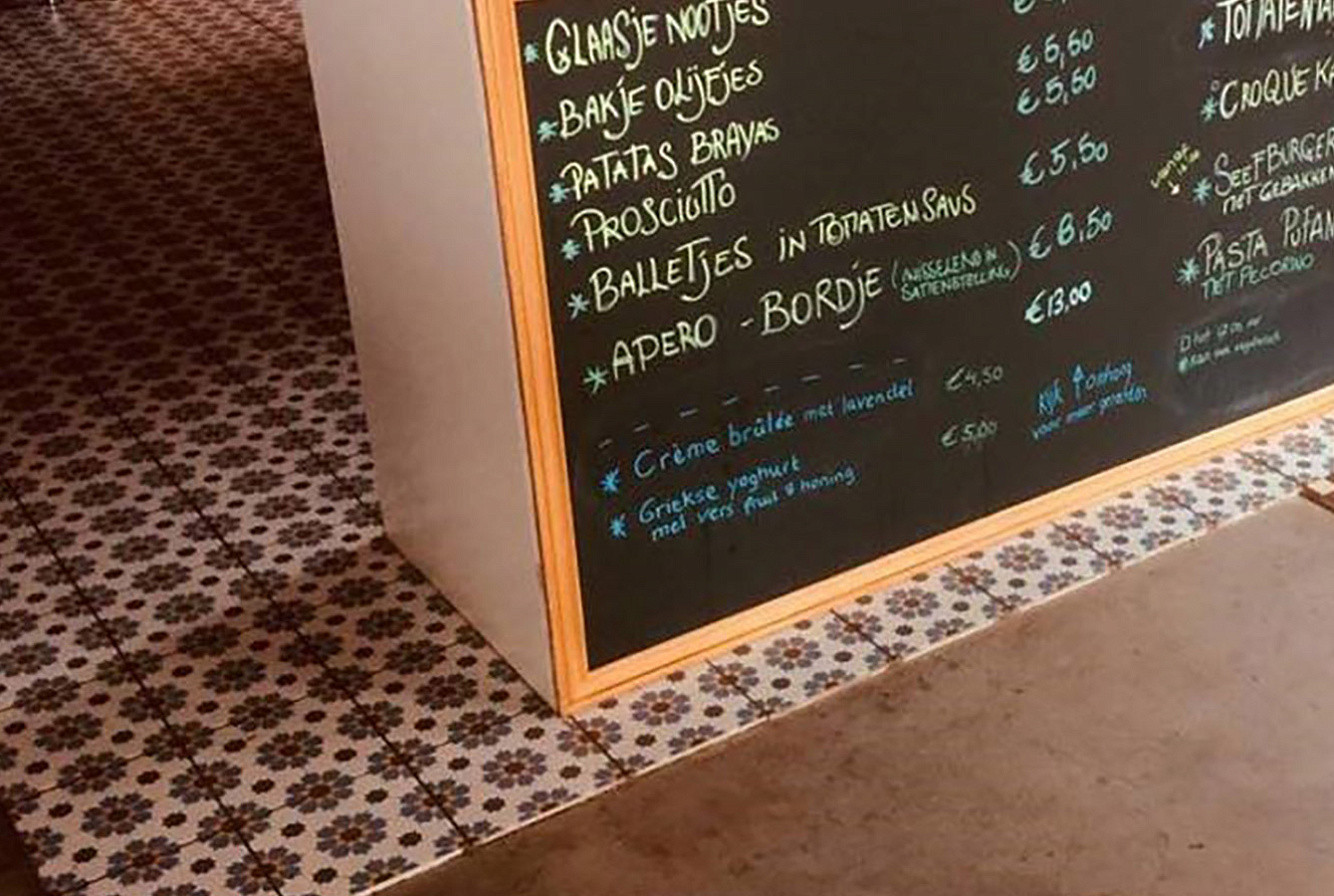 * GLAASJE NOOTJES
* BAKJE OLIJFJES €6,60
* PATATAS BRAVAS €5,50
* PROSCIUTTO €5,50
* BALLETJES IN TOMATENSAUS €8,50
* APERO - BORDJE (WISSELEND IN €13,00
SAMENSTELLING)
* Crème brûlée met lavendel €4,50
* Griekse yoghurt €5,00
met vers fruit & honing
Kijk ↑ omhoog
voor meer gerechten
*
* CROQUE
* SEEFBURGER
MET GEBAKKEN
* PASTA
MET PECORINO